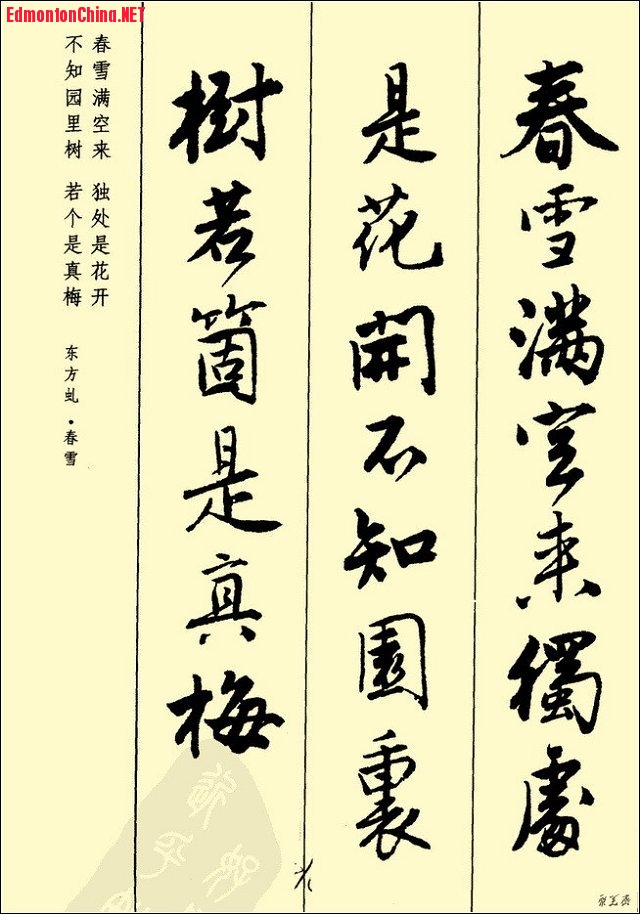 EdmontonChina.NET
春雪滿空来獨處
是花開不知園裏
樹若箇是真梅
春雪满空来 独处是花开
不知园里树 若个是真梅
东方虬·春雪